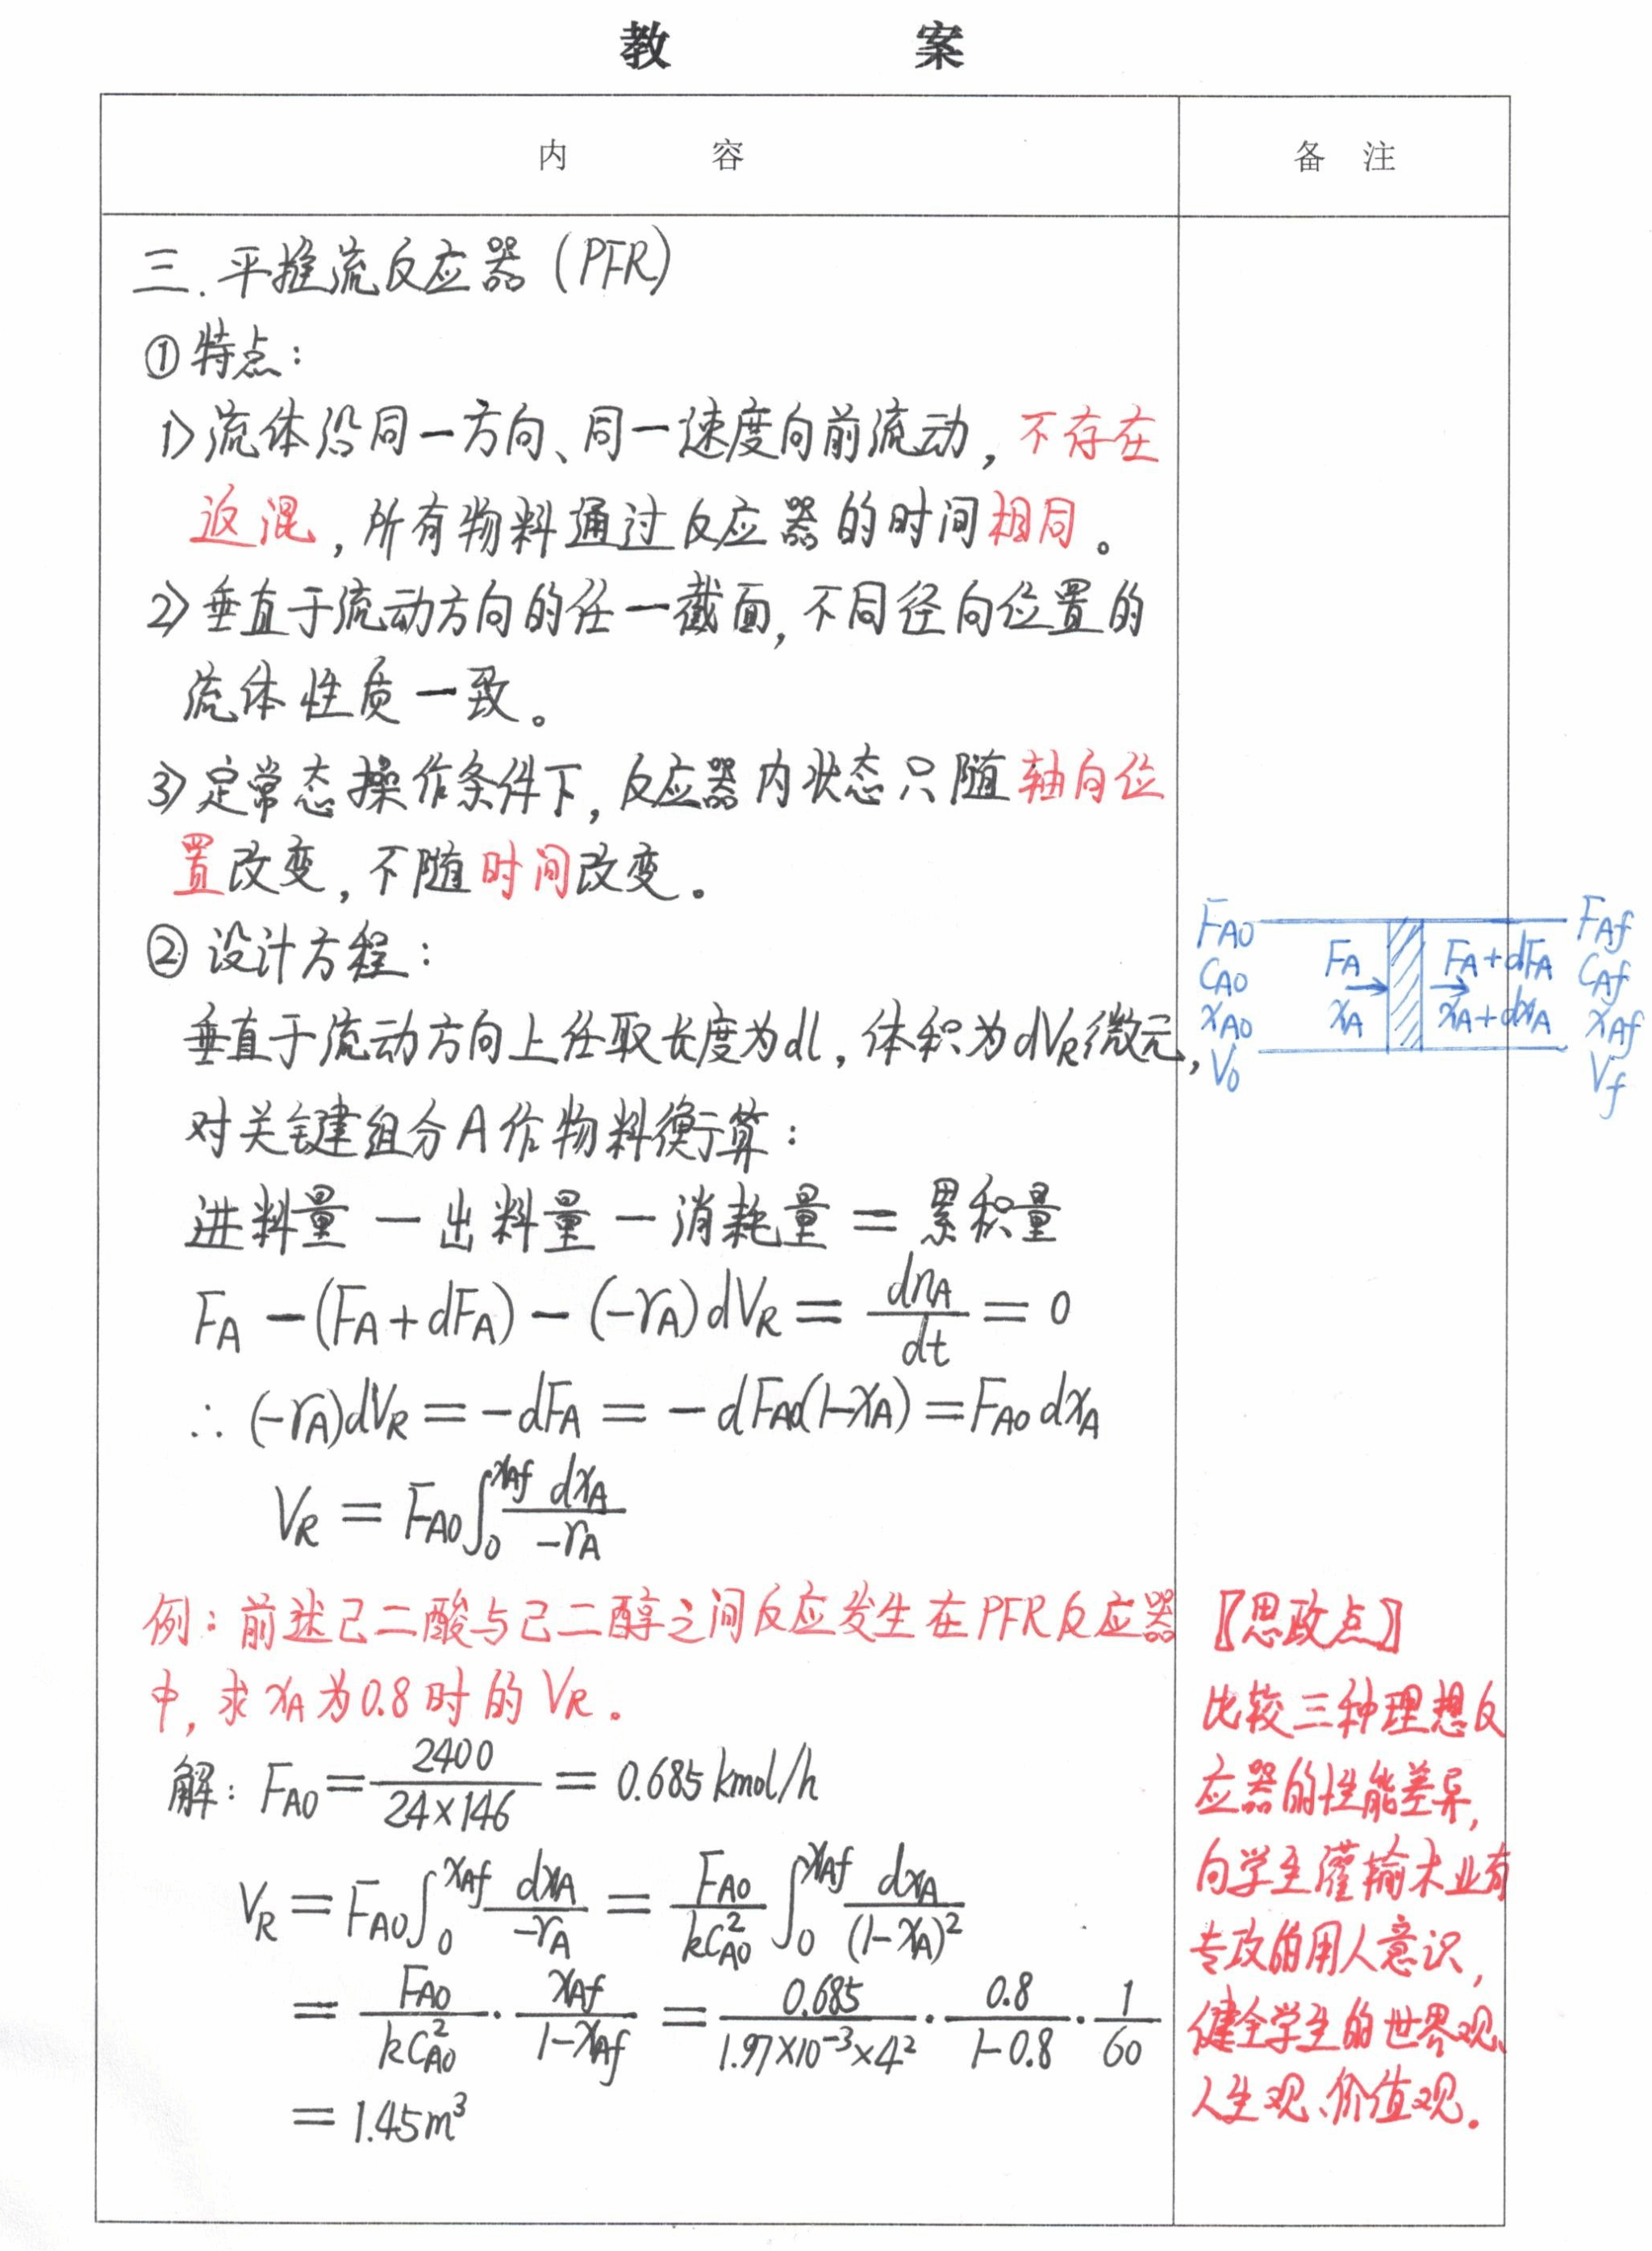 教 案
内 容
备 注
三.平推流反应器(PFR)
①特点:
1>流体沿同一方向、同一速度向前流动,不存在
返混,所有物料通过反应器的时间相同。
2>垂直于流动方向的任一截面,不同径向位置的
流体性质一致。
3>定常态操作条件下,反应器内状态只随轴向位
置改变,不随时间改变。
②设计方程:
垂直于流动方向上任取长度为dl,体积为dV_R微元,
对关键组分A作物料衡算:
进料量-出料量-消耗量=累积量
F_A-(F_A+dF_A)-(-r_A)dV_R=dn_A/dt=0
∴(-r_A)dV_R=-dF_A=-dF_A0(1-x_A)=F_A0dx_A
V_R=F_A0∫_0^{x_Af} dx_A/-r_A
例:前述己二酸与己二醇之间反应发生在PFR反应器
中,求x_A为0.8时的V_R。
解:F_A0=2400/(24×146)=0.685kmol/h
V_R=F_A0∫_0^{x_Af} dx_A/-r_A=F_A0/(kC_A0^2)∫_0^{x_Af} dx_A/(1-x_A)^2
=F_A0/(kC_A0^2)·x_Af/(1-x_Af)=0.685/(1.97×10^-3×4^2)·0.8/(1-0.8)·1/60
=1.45m³
F_A0
C_A0
x_A0
V_0
F_A
x_A
F_A+dF_A
x_A+dx_A
F_Af
C_Af
x_Af
V_f
〖思政点〗
比较三种理想反
应器的性能差异,
向学生灌输术业有
专攻的用人意识,
健全学生的世界观、
人生观、价值观。